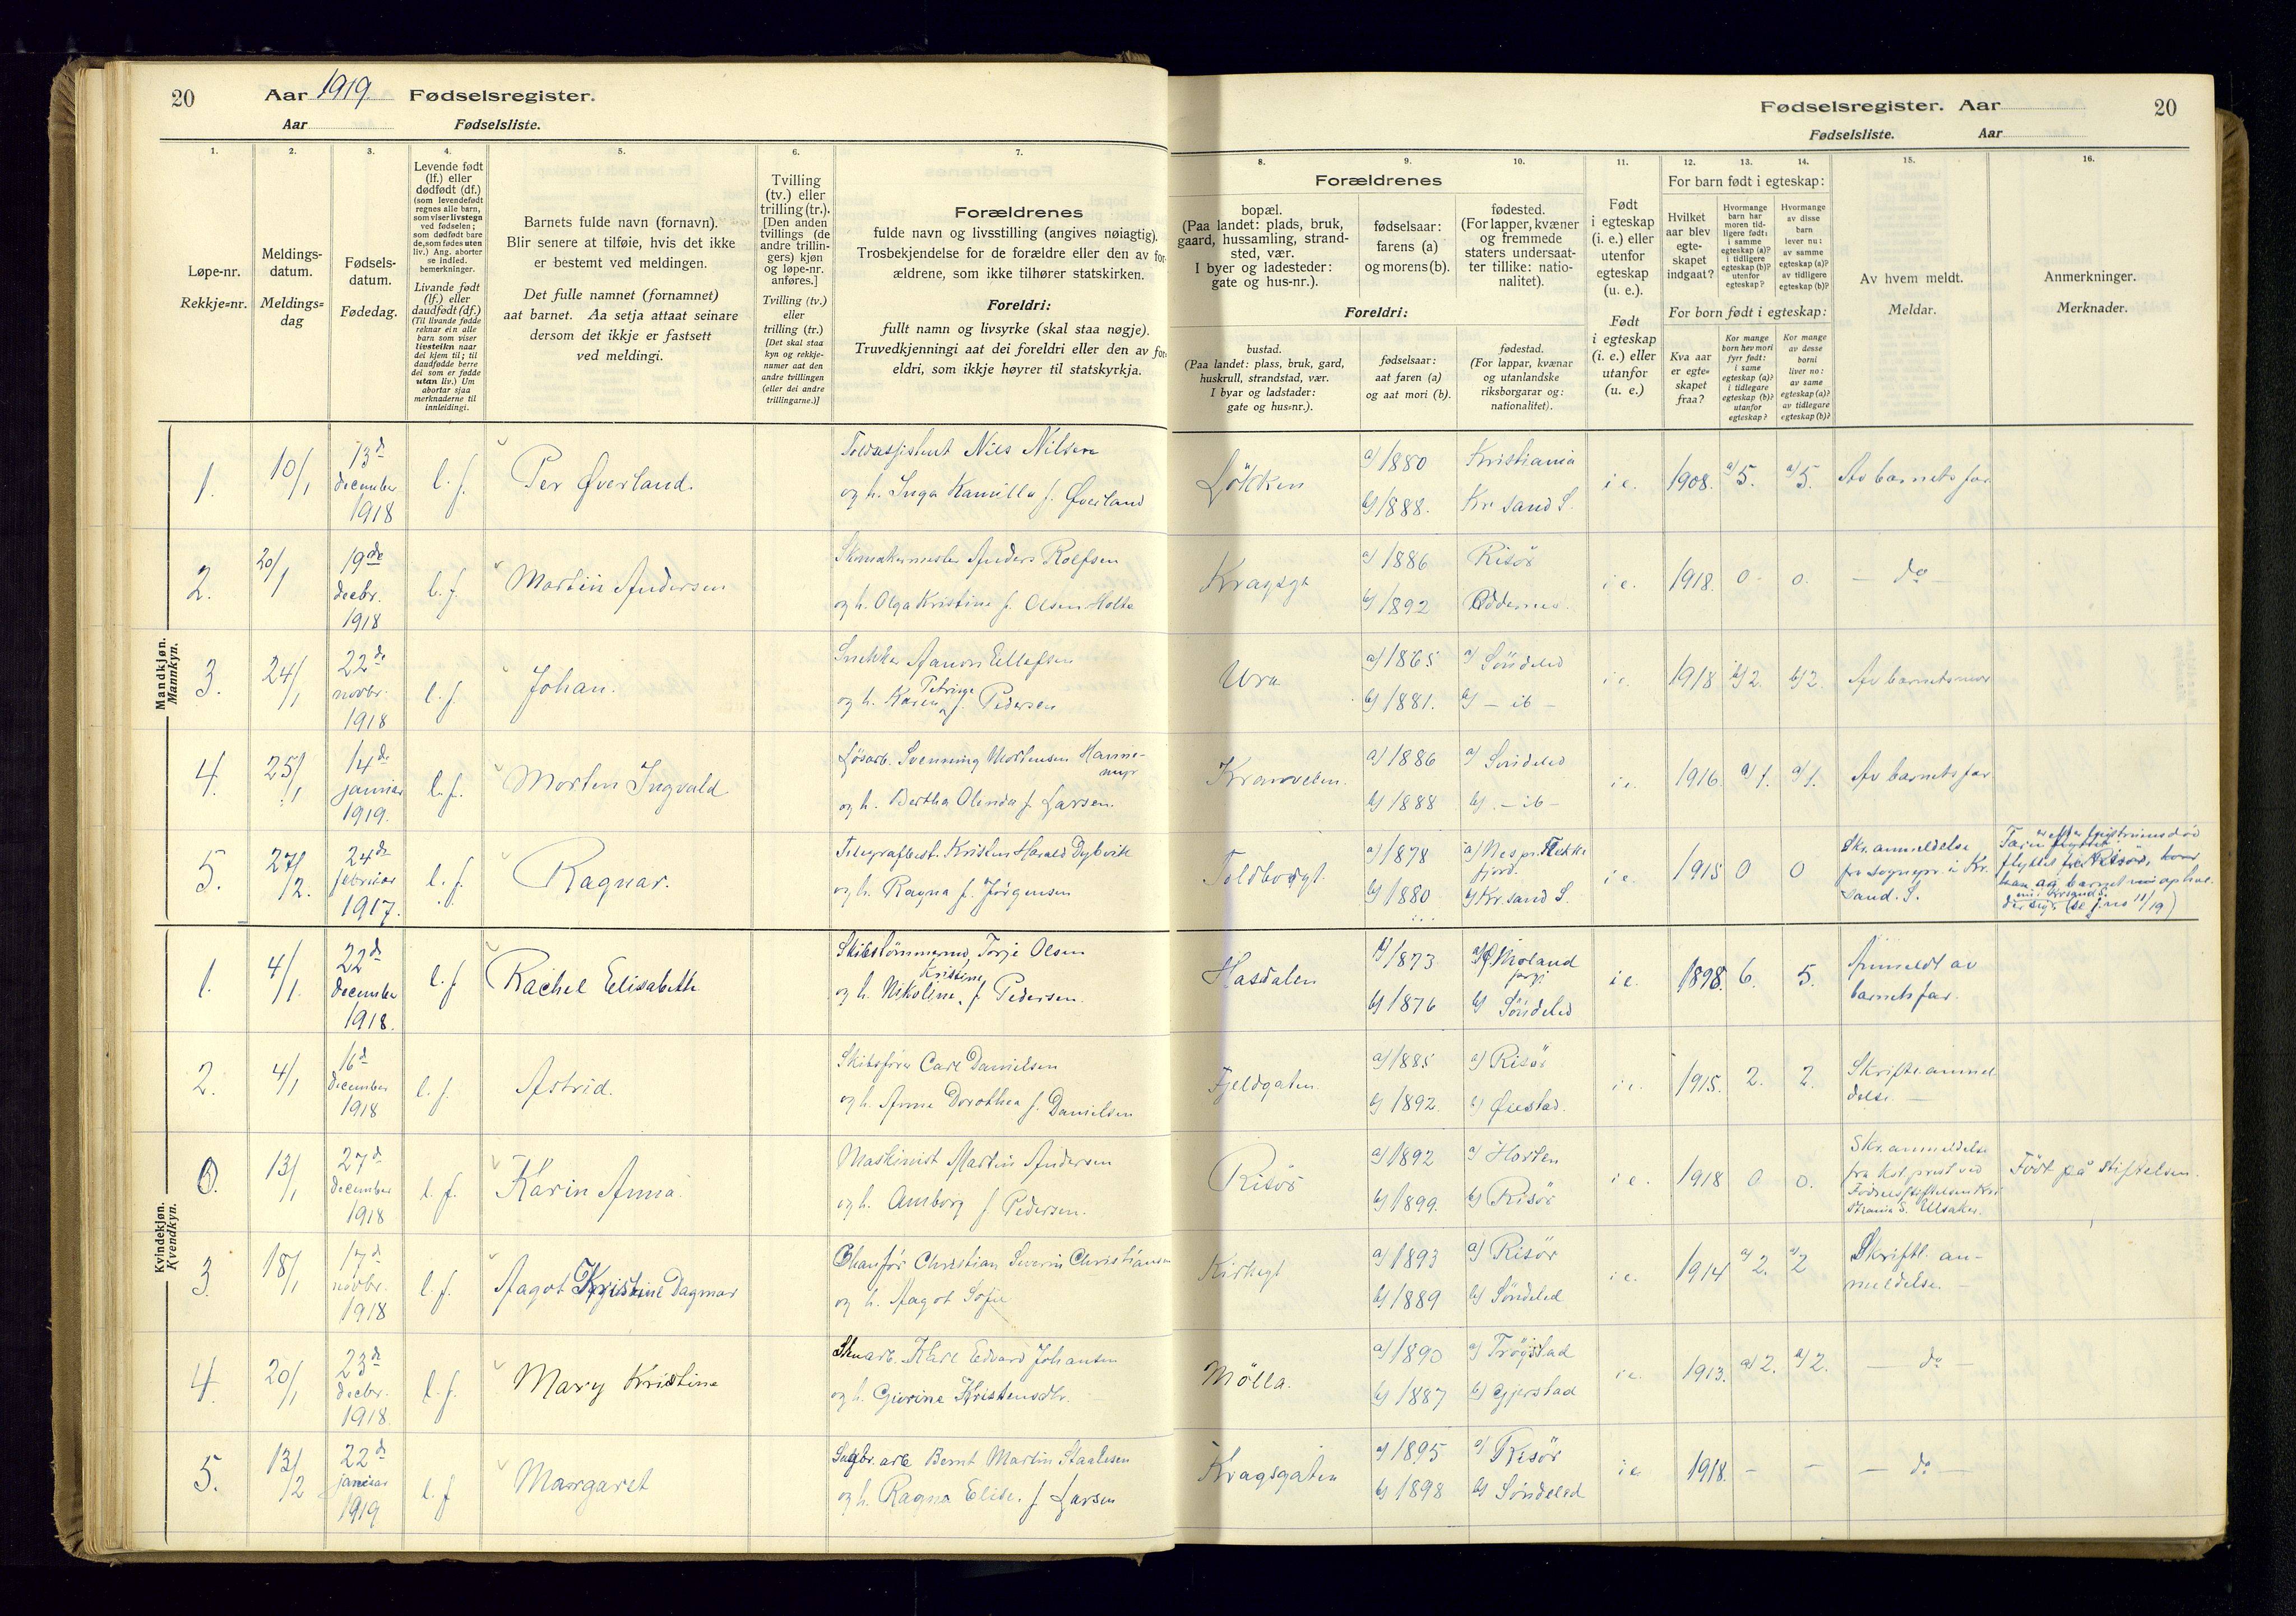 20
Aar 1919. Fødselsregister.
Aar Fødselsliste.
Fødselsregister. Aar
20
Fødselsliste. Aar
1.
2.
3.
4.
5.
6.
7.
8.
9.
10.
11.
12.
13.
14.
15.
16.
Løpe-nr.
Rekkje=nr.
Meldings-
datum.
Meldings=
dag
Fødsels-
datum.
Fødedag.
Levende født
(lf.) eller
dødfødt (df.)
(som levendefødt
regnes alle barn,
som viser livstegn
ved fødselen;
som dødfødt bare
de, som fødes uten
liv.) Ang. aborter
se indled.
bemerkninger.
Livande født
(lf.) eller
daudfødt (df.)
(Til livande fødde
reknar ein alle
barn som viser
livsteikn naar
dei kjem til; til
daudfødde berre
dei som er fødde
utan liv.) Um
abortar sjaa
merknaderne til
innleidingi.
Barnets fulde navn (fornavn).
Blir senere at tilføie, hvis det ikke
er bestemt ved meldingen.
Det fulle namnet (fornamnet)
aat barnet. Aa setja attaat seinare
dersom det ikkje er fastsett
ved meldingi.
Tvilling
(tv.) eller
trilling (tr.).
[Den anden
tvillings (de
andre trillin-
gers) kjøn
og løpe-nr.
anføres.]
Tvilling (tv.)
eller
trilling (tr.)
[Det skal staa
kyn og rekkje-
numer aat den
andre tvillingen
(eller dei andre
trillingarne.)]
Forældrenes
fulde navn og livsstilling (angives nøiagtig).
Trosbekjendelse for de forældre eller den av for-
ældrene, som ikke tilhører statskirken.
Foreldri:
fullt namn og livsyrke (skal staa nøgje).
Truvedkjenningi aat dei foreldri eller den av for-
eldri, som ikkje høyrer til statskyrkja.
Forældrenes
bopæl.
(Paa landet: plads, bruk,
gaard, hussamling, strand-
sted, vær.
I byer og ladesteder:
gate og hus-nr.).
fødselsaar:
farens (a)
og morens (b).
fødested.
(For lapper, kvæner
og fremmede
staters undersaat-
ter tillike: natio-
nalitet).
Foreldri:
bustad.
(Paa landet: plass, bruk, gard,
huskrull, strandstad, vær.
I byar og ladstader:
gate og hus=nr.).
fødselsaar:
aat faren (a)
og aat mori (b).
fødestad.
(For lappar, kvænar
og utanlandske
riksborgarar og:
nationalitet).
Født
i egteskap
(i. e.) eller
utenfor
egteskap
(u. e.).
Født
i egteskap
(i. e.) eller
utanfor
(u. e.)
For barn født i egteskap:
Hvilket
aar blev
egte-
skapet
indgaat?
Hvormange
barn har
moren tid-
ligere født:
i samme
egteskap (a)?
i tidligere
egteskap (b)?
utenfor
egteskap?
Hvormange
av disse
barn
lever nu:
av samme
egteskap (a)?
av tidligere
egteskap (b)?
For born født i egteskap:
Kva aar
er egte=
skapet
fraa?
Kor mange
born hev mori
fyrr født:
i same
egteskap (a)?
i tidlegare
egteskap (b)?
utanfor
egteskap?
Kor mange
av desse
borni
liver no:
av same
egteskap (a)?
av tidlegare
egteskap (b)?
Av hvem meldt.
Meldar.
Anmerkninger.
Merknader.
Mandkjøn.
Mannkyn.
1. 10/1 13de december 1918 l. f. Per Øverland.
Toldassistent Nils Nilsen
og h. Inga Kamilla f. Øverland
Løkken a) 1880 b) 1888. Kristiania Kr.sand S. i e. 1908. a) 5. a) 5. Av barnets far
2. 20/1 19de decbr. 1918 l. f. Martin Andersen
Skomakermester Anders Rolfsen
og h. Olga Kristine f. Olsen Holte
Kragsgt a) 1886 b) 1892 Risör Oddernes. i e. 1918. 0 0. — do —
3. 24/1 22de novbr. 1918 l. f. Johan.
Snekker Aanon Ellefsen
og h. Karen Petrine f. Pedersen
Ura a) 1865 b) 1881. a) Søndeled b) — ib — i e. 1918 b) 2. b) 2. Av barnets mor
4. 25/1 14de januar 1919. l. f. Morten Ingvald
Løsarb. Svenning Mortensen Hanne-
myr
og h. Bertha Olinda f. Larsen.
Kranveien. a) 1886 b) 1888 a) Søndeled b) — ib — i e. 1916. a) 1. a) 1. Av barnets far
5. 27/2. 24de februar 1917. l. f. Ragnar.
Telegrafbest. Kristen Harald Dybvik
og h. Ragna f. Jørgensen
Toldbodgt. a) 1878 b) 1880 a) Nes pr. Flekke
fjord. b) Kr.sand S. i e. 1915 0 0 Skr. anmeldelse
fra sognepr. i Kr.
sand. S.
flyttet Risör, hvor
barnet
(se j.no 11/19)
Kvindekjøn.
Kvendkyn.
1. 4/1. 22de december 1918. l. f. Rachel Elisabeth
Skibstømmermd. Torje Olsen
og h. Nikoline Kristine f. Pedersen.
Hasdalen a) 1873 b) 1876 a) Ø. Moland
b) Søndeled i e. 1898. 6. 5. Anmeldt av
barnets far.
2. 4/1 16de december 1918 l. f. Astrid.
Skibsfører Carl Danielsen
og h. Anna Dorothea f. Danielsen
Fjeldgaten. a) 1885 b) 1892. a) Risör b) Øiestad. i e. 1915. 2. 2. Skriftl. anmel
delse. —
0. 13/1 27de december 1918 l. f. Karin Anna.
Maskinist Martin Andersen
og h. Amborg f. Pedersen.
Risör a) 1892 b) 1899. a) Horten b) Risör i e. 1918 0 0. Skr. anmeldelse
fra kst. prest ved
Fødselsstiftelsen Kri
stiania S. Ulsaker. Født på Stiftelsen.
3. 18/1 17de novbr. 1918 l. f. Aagot Kristine Dagmar
Chaufør Christian Severin Christiansen
og h. Aagot Sofie
Kirkegt a) 1893 b) 1889 a) Risör b) Søndeled i e. 1914 a) 2. a) 2 Skriftl. an-
meldelse. —
4. 20/1 23de decbr. 1918. l. f. Mary Kristine
Karl Edvard Johansen
og h. Gurine Kristensdtr.
Mølla. a) 1890 b) 1887 a) Trøgstad b) Gjerstad i e. 1913. a) 2. a) 2. — do —
5. 13/2 22de januar 1919 l. f. Margaret
Sagbr. arb Bernt Martin Staalesen
og h. Ragna Elise. f. Larsen
Kragsgaten a) 1895 b) 1898 a) Risör b) Søndeled i e 1918. — — — do —